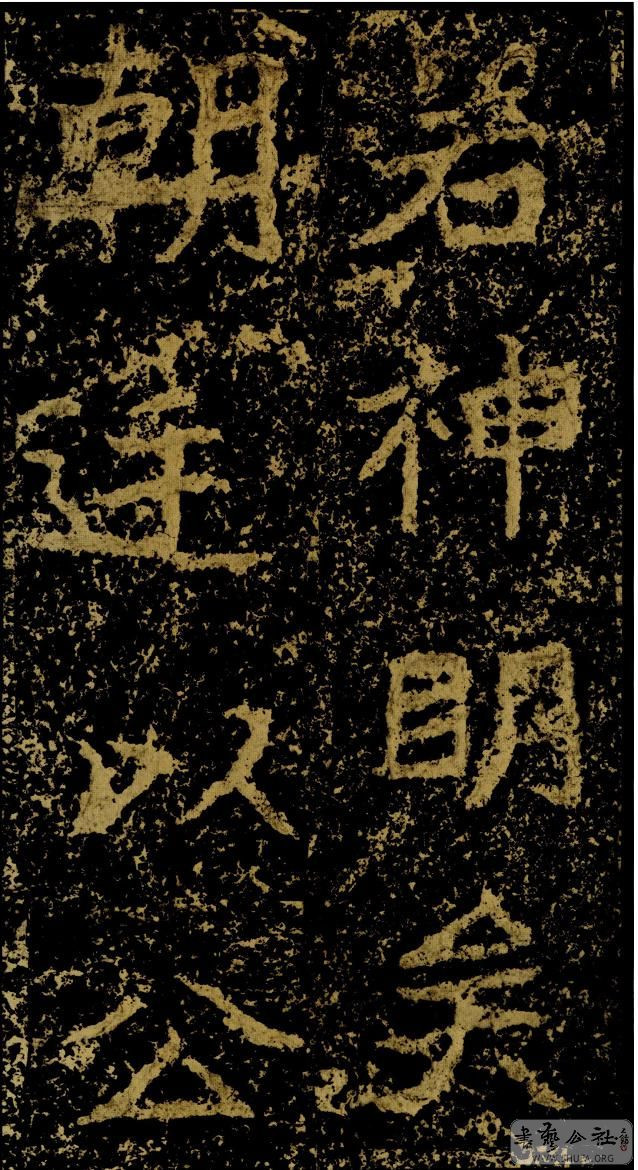 若神明矣
朝達以公
書藝公社
WWW.SHUFA.ORG